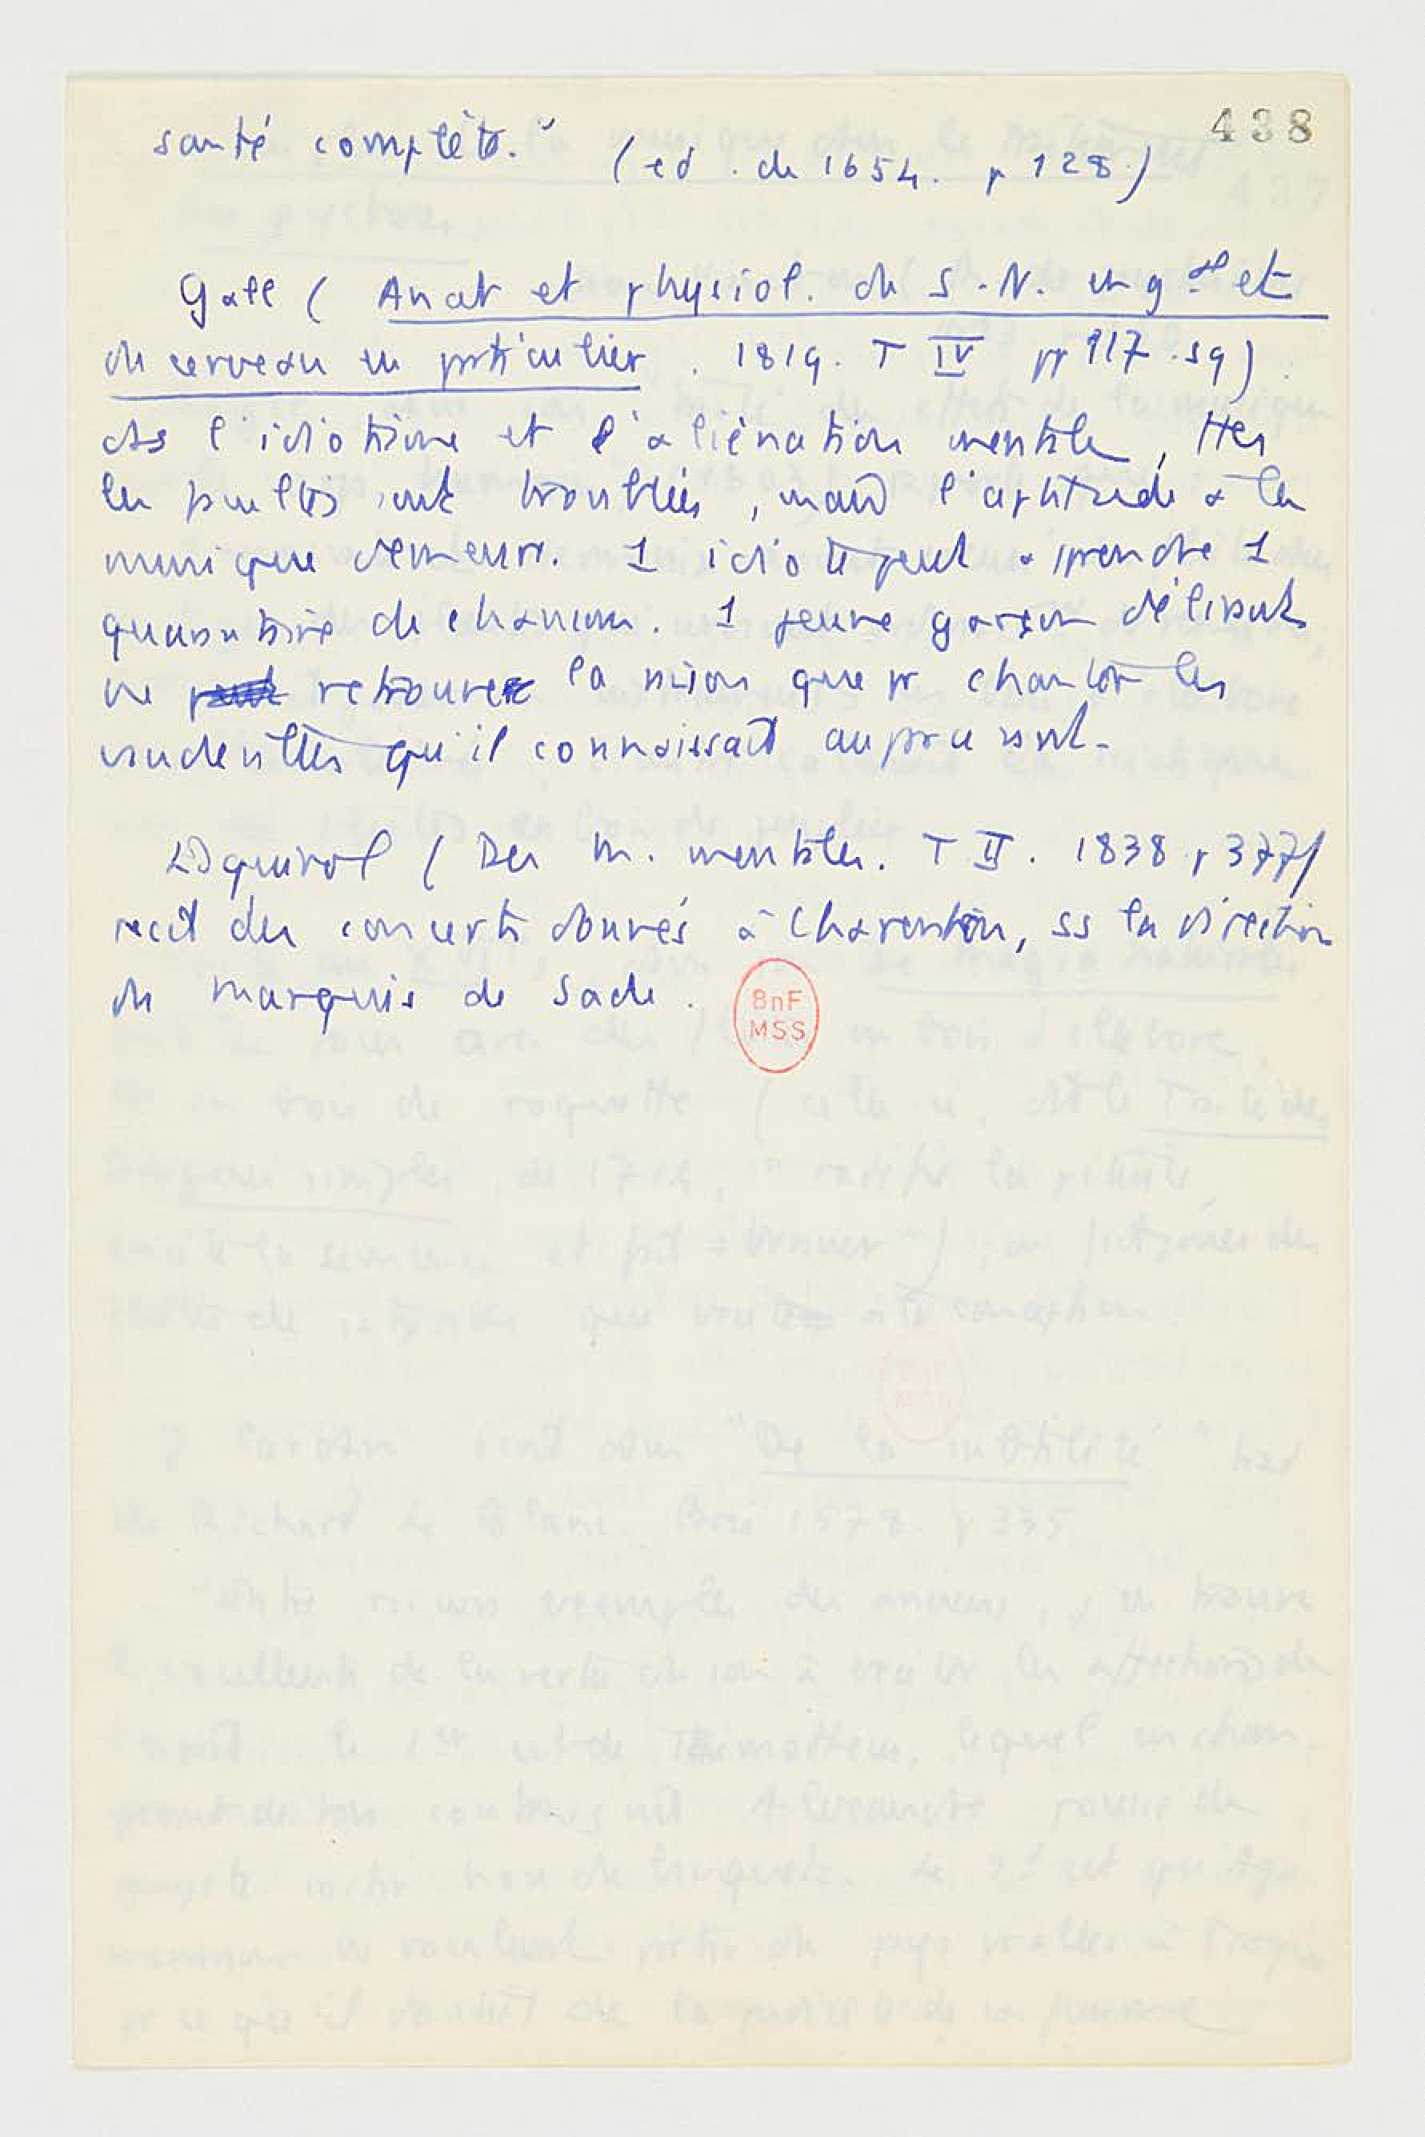 438
santé complète." (ed. de 1654. p 128.)
Gall (Anat et physiol. du S.N. en gal et
du cerveau en particulier. 1819. T IV pp 117.sq)
ds l'idiotisme et l'aliénation mentale, ttes
les facultés sont troublées, mais l'aptitude à la
musique demeure. 1 idiote peut apprendre 1
quarantaine de chansons. 1 jeune garçon délirant
ne retrouve la raison que pr chanter les
vaudevilles qu'il connaissait auparavant.
Esquirol (Des M. mentales. T II. 1838 p 377)
récit des concerts donnés à Charenton, ss la direction
du Marquis de Sade.
BnF
MSS